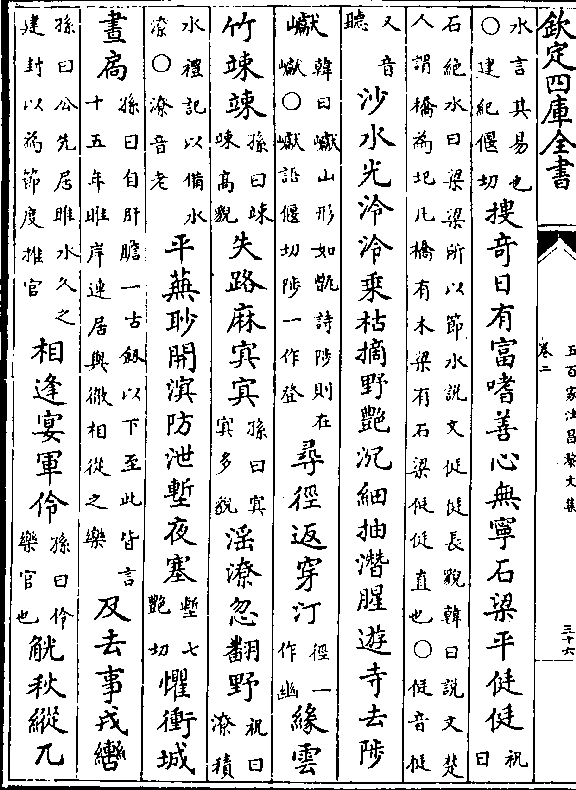 欽定四庫全書
卷二
五百家注昌黎文集
三十六
水言其易也○建紀偃切搜奇日有富嗜善心無寧石梁平侹侹祝曰
石絶水曰梁梁所以節水説文侹侹長貌韓曰説文楚人謂橋為圯凡橋有木梁有石梁侹侹直也○侹音侹
又音聽沙水光泠泠乗枯摘野艷沉細抽潛腥遊寺去陟
巘韓曰巘山形如甑詩陟則在巘○巘語偃切陟一作登尋徑返穿汀徑一作幽緣雲
竹竦竦孫曰竦竦高貌失路麻㝠㝠孫曰㝠㝠多貌淫潦忽翻野祝曰潦積
水禮記以備水潦○潦音老平蕪眇開溟防泄塹夜塞塹七艷切懼衝城
晝扃孫曰自肝膽一古劔以下至此皆言十五年睢岸連居與徹相從之樂及去事戎轡
孫曰公先居睢水久之建封以為節度推官相逢宴軍伶孫曰伶樂官也觥秋縱兀